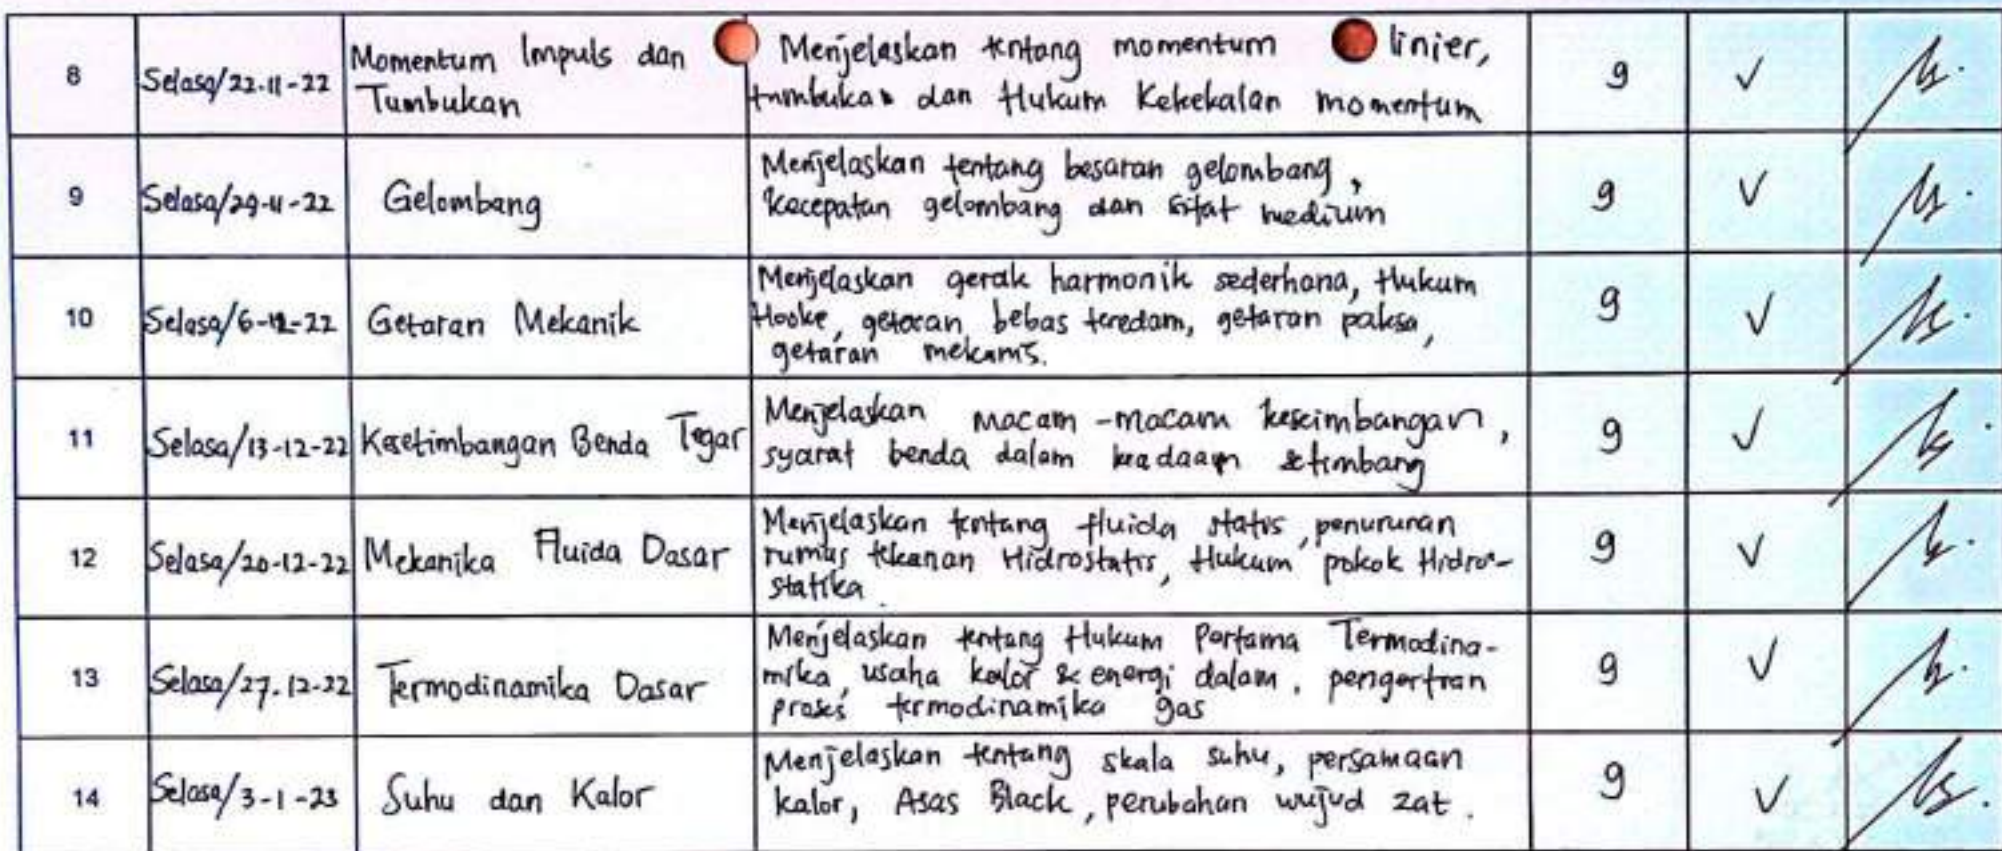 8 Selasa/22-11-22 Momentum Impuls dan Menjelaskan tentang momentum linier, 9 ✓
Tumbukan tumbukan dan Hukum Kekekalan momentum
9 Selasa/29-11-22 Gelombang Menjelaskan tentang besaran gelombang, 9 ✓
kecepatan gelombang dan sifat medium
10 Selasa/6-12-22 Getaran Mekanik Menjelaskan gerak harmonik sederhana, Hukum 9 ✓
Hooke, getaran bebas teredam, getaran paksa,
getaran mekanis.
11 Selasa/13-12-22 Kesetimbangan Benda Tegar Menjelaskan macam-macam keseimbangan, 9 ✓
syarat benda dalam keadaan setimbang
12 Selasa/20-12-22 Mekanika Fluida Dasar Menjelaskan tentang fluida statis, penurunan 9 ✓
rumus tekanan Hidrostatis, Hukum pokok Hidro-
statika
13 Selasa/27-12-22 Termodinamika Dasar Menjelaskan tentang Hukum Pertama Termodina- 9 ✓
mika, usaha kalor & energi dalam, pengertian
proses termodinamika gas
14 Selasa/3-1-23 Suhu dan Kalor Menjelaskan tentang skala suhu, persamaan 9 ✓
kalor, Asas Black, perubahan wujud zat.